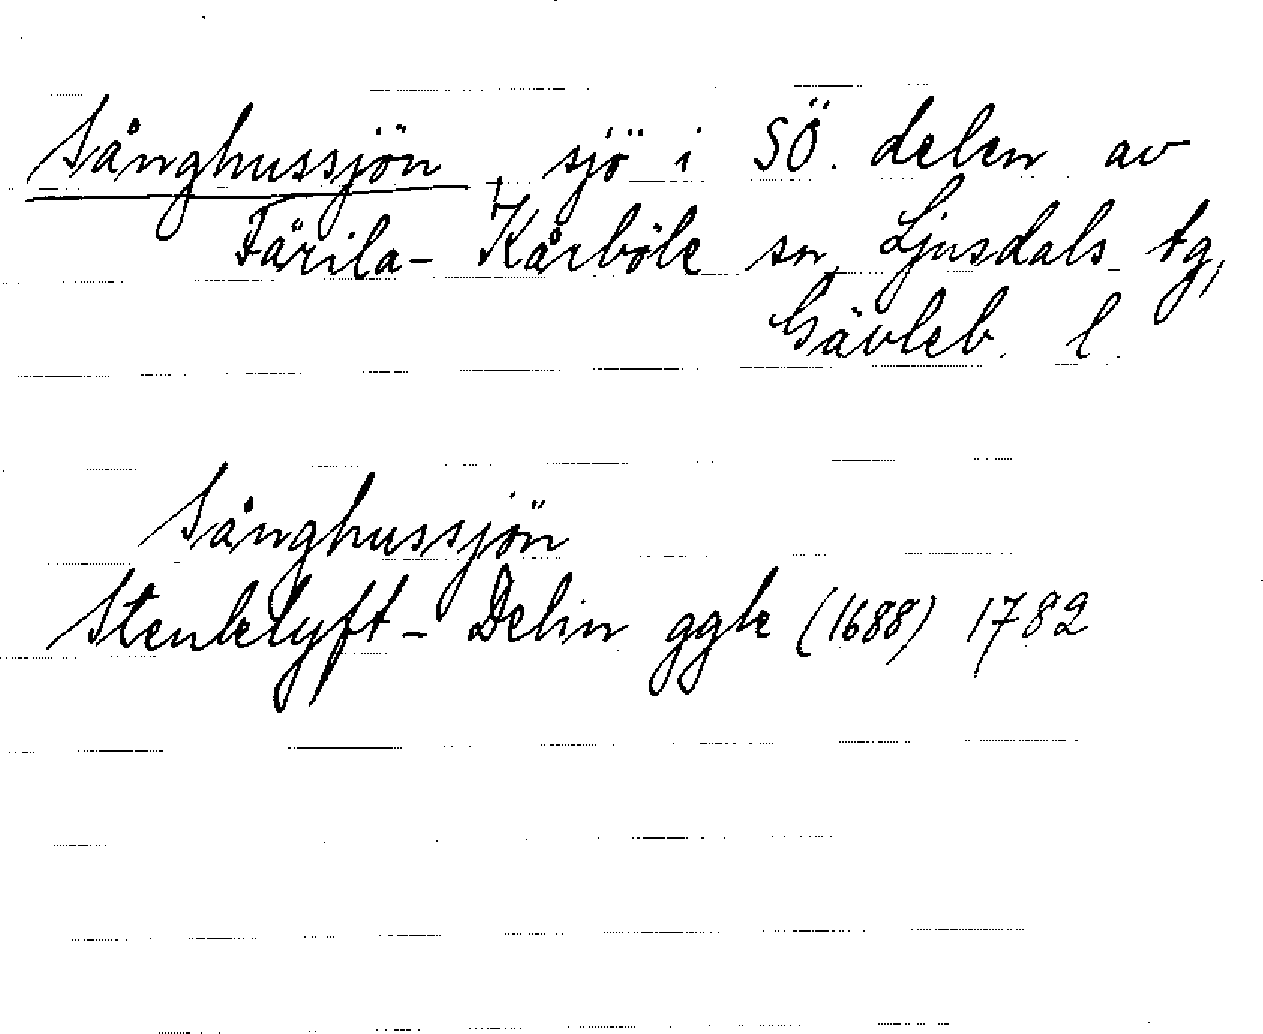 Sånghussjön, sjö i SÖ. delen av
Färila-Kårböle sn, Ljusdals tg,
Gävleb. l.
Sånghussjön
Stenklyft-Delin ggk (1688) 1782